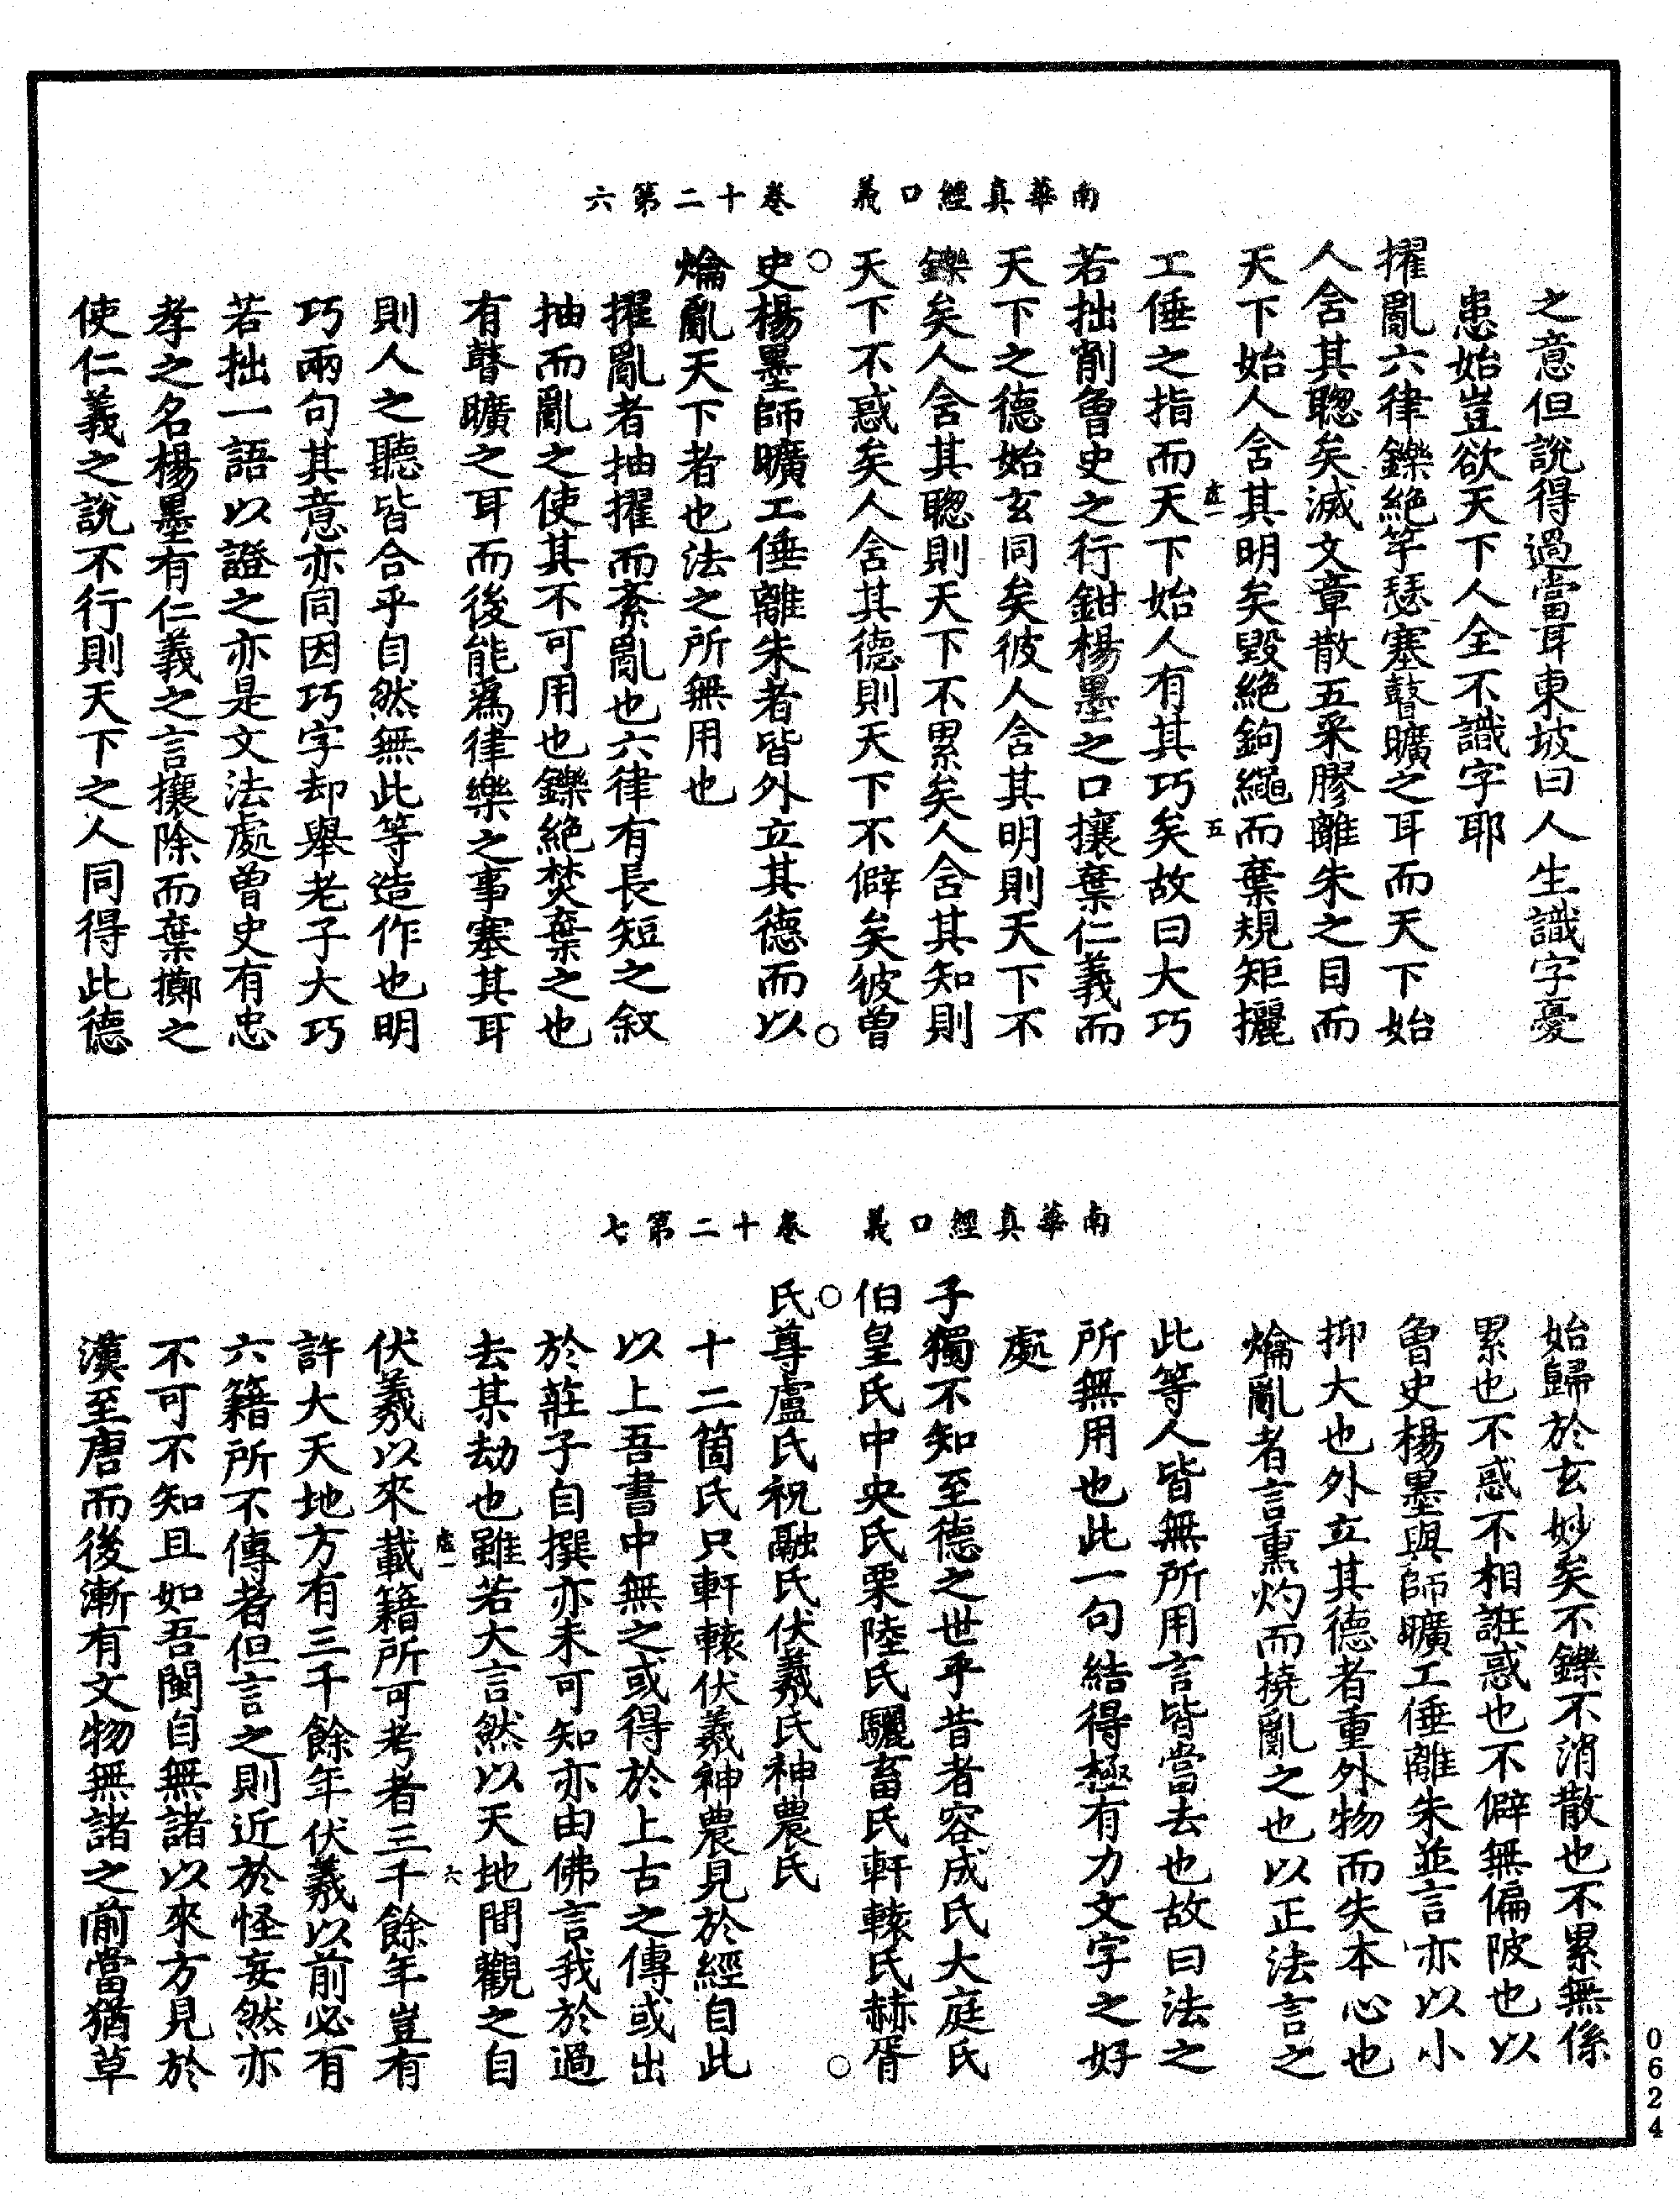 南華真經口義　卷十二第六
之意但說得過當耳東坡曰人生識字憂
患始豈欲天下人全不識字耶
擢亂六律鑠絕竽瑟塞瞽曠之耳而天下始
人含其聰矣滅文章散五采膠離朱之目而
天下始人含其明矣毀絕鉤繩而棄規矩攦
工倕之指而天下始人有其巧矣故曰大巧
虛一　五
若拙削曾史之行鉗楊墨之口攘棄仁義而
天下之德始玄同矣彼人含其明則天下不
鑠矣人含其聰則天下不累矣人含其知則
天下不惑矣人含其德則天下不僻矣彼曾
史楊墨師曠工倕離朱者皆外立其德而以
爚亂天下者也法之所無用也
擢亂者抽擢而紊亂也六律有長短之敘
抽而亂之使其不可用也鑠絕焚棄之也
有瞽曠之耳而後能爲律樂之事塞其耳
則人之聽皆合乎自然無此等造作也明
巧兩句其意亦同因巧字却舉老子大巧
若拙一語以證之亦是文法處曾史有忠
孝之名楊墨有仁義之言攘除而棄擲之
使仁義之說不行則天下之人同得此德
南華真經口義　卷十二第七
始歸於玄妙矣不鑠不消散也不累無係
累也不惑不相誑惑也不僻無偏陂也以
曾史楊墨與師曠工倕離朱並言亦以小
抑大也外立其德者重外物而失本心也
爚亂者言熏灼而撓亂之也以正法言之
此等人皆無所用言皆當去也故曰法之
所無用也此一句結得極有力文字之好
處
子獨不知至德之世乎昔者容成氏大庭氏
伯皇氏中央氏栗陸氏驪畜氏軒轅氏赫胥
氏尊盧氏祝融氏伏羲氏神農氏
十二箇氏只軒轅伏羲神農見於經自此
以上吾書中無之或得於上古之傳或出
於莊子自撰亦未可知亦由佛言我於過
去某劫也雖若大言然以天地間觀之自
虛一　六
伏羲以來載籍所可考者三千餘年豈有
許大天地方有三千餘年伏羲以前必有
六籍所不傳者但言之則近於怪妄然亦
不可不知且如吾閩自無諸以來方見於
漢至唐而後漸有文物無諸之前當猶草
0624